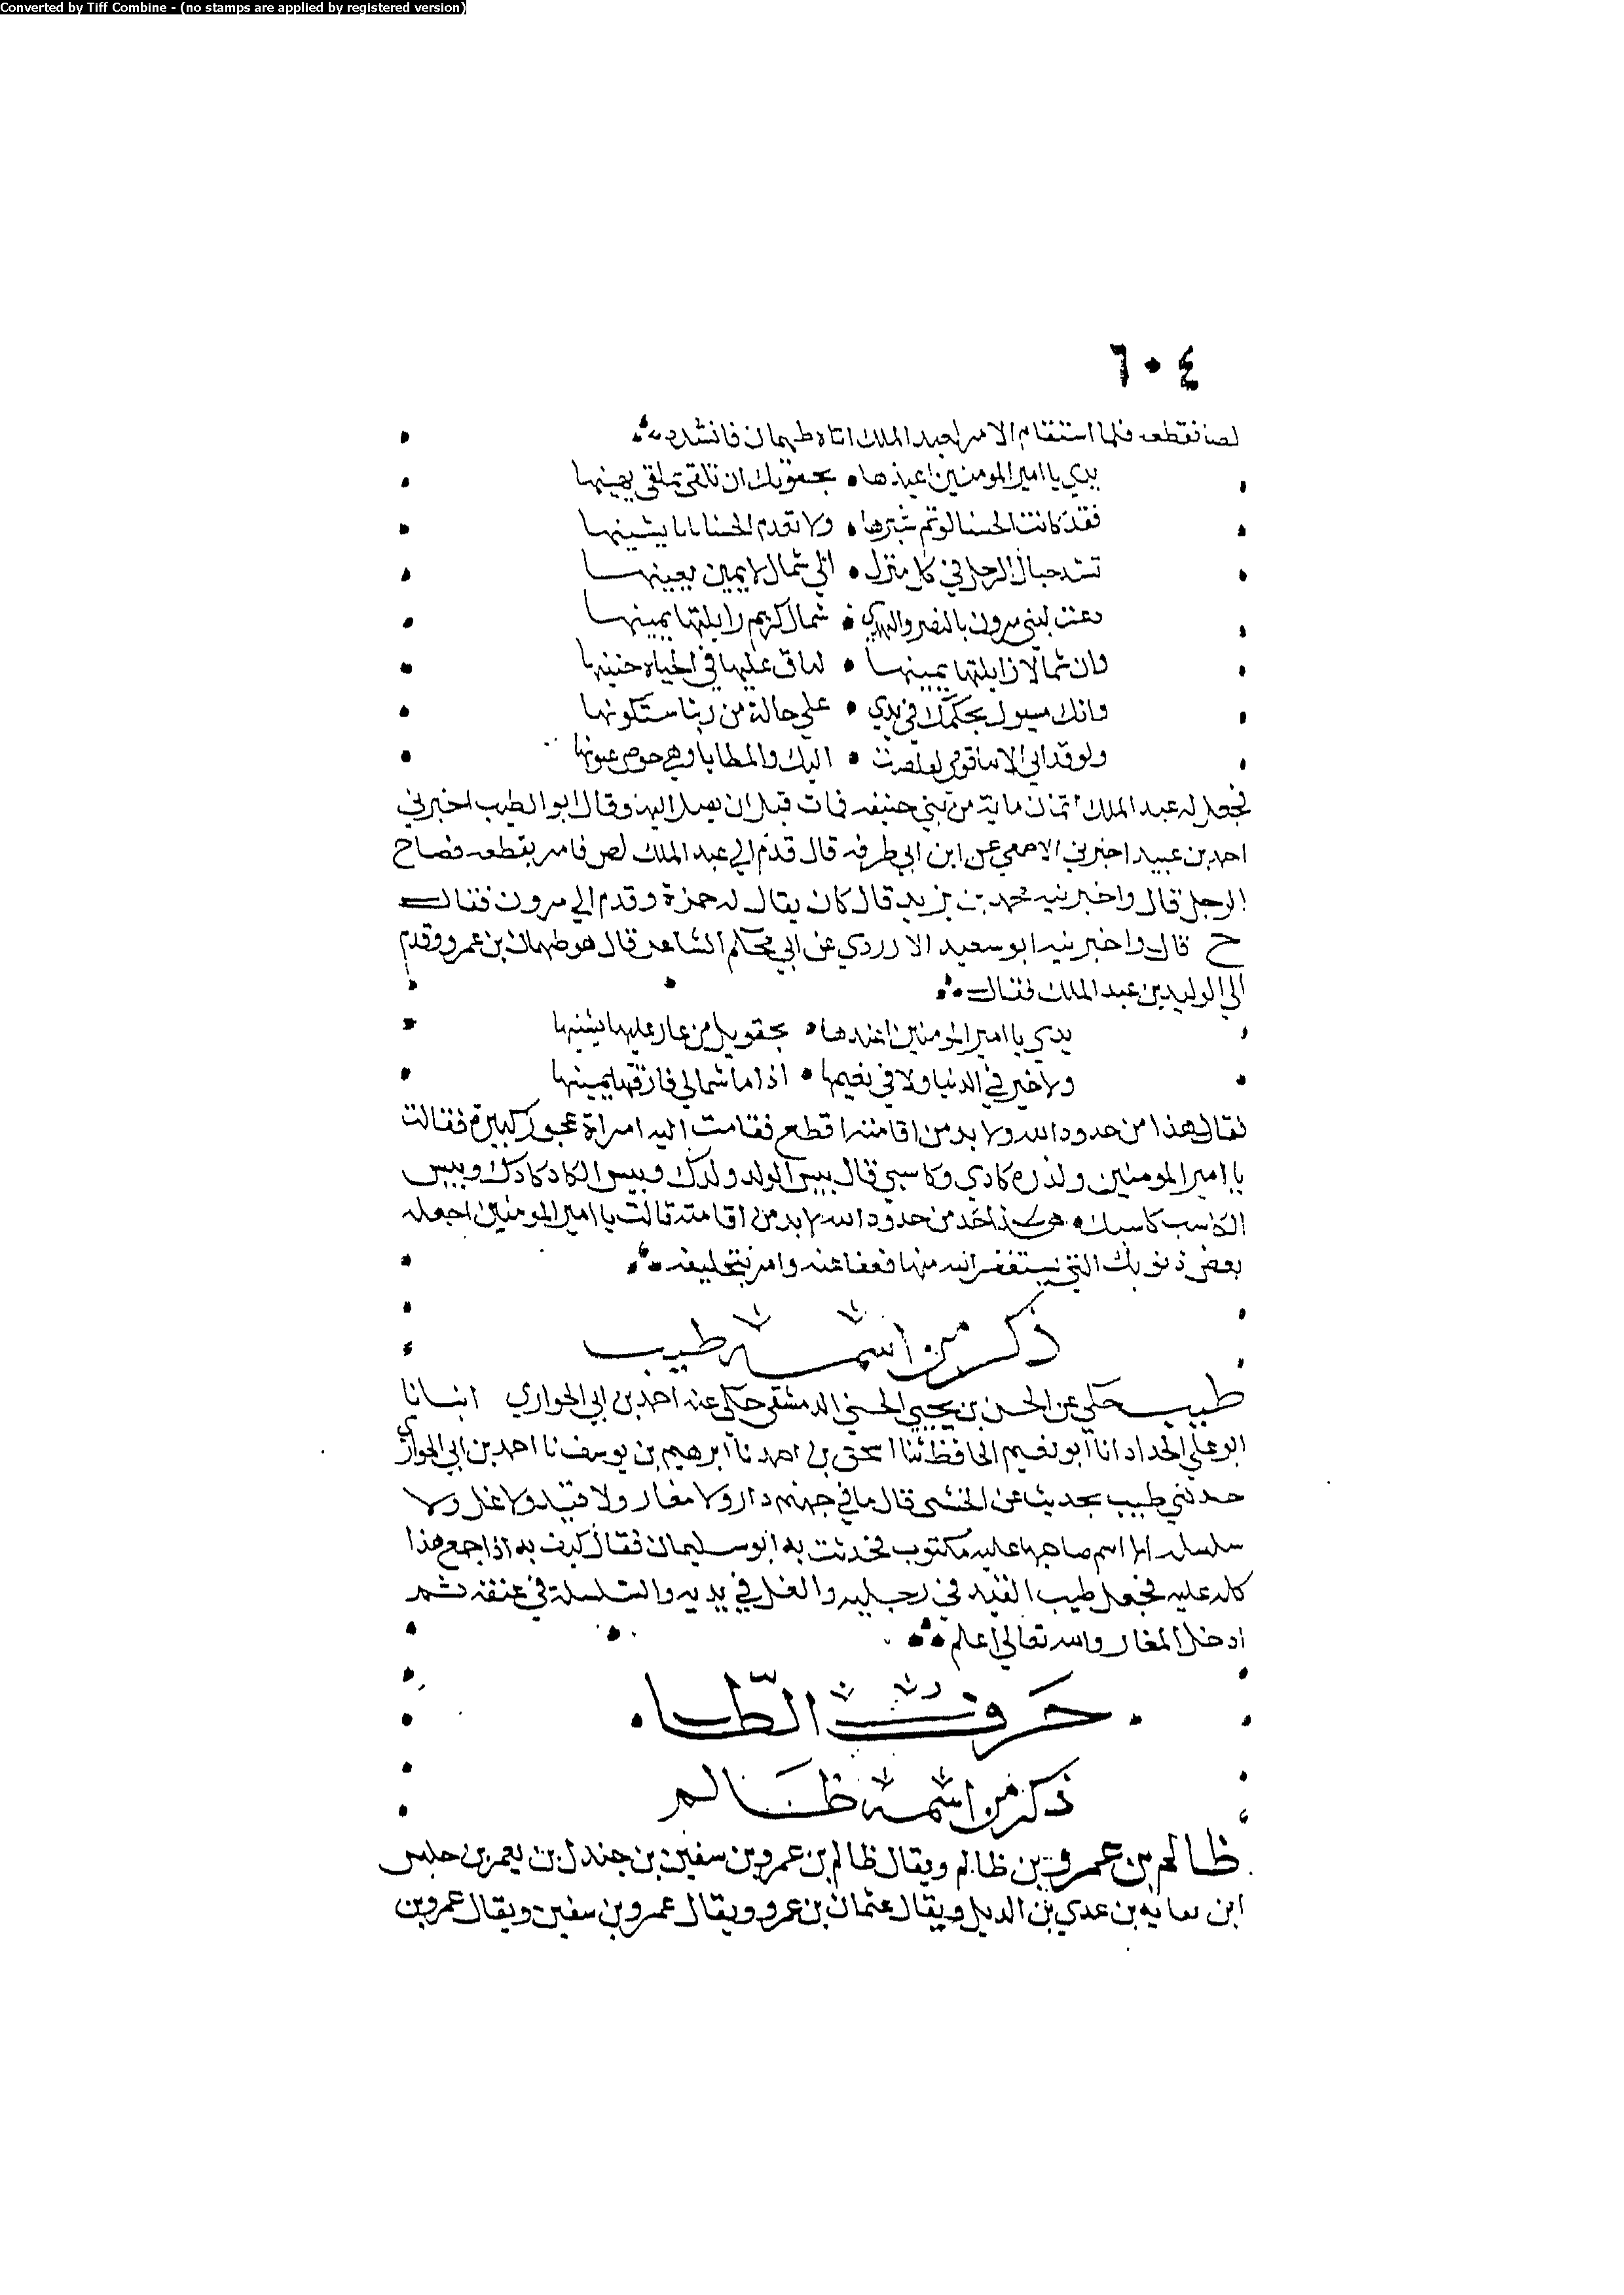 Converted by Tiff Combine - (no stamps are applied by registered version)
٦٠٤
لصا فقطعه فلما استقام الامر لعبد الملك اتاه طهمان فانشده
يدي يا امير المومنين اعيذها • بحقويك ان تلقى بملقى يهينها
فقد كانت الحسنا لو تم شبرها • ولا تعدم الحسنا ما يشينها
تشد حبال الرحل في كل منزل • الي شمال لا يمين يعينها
دعت لبني مرون بالنصر والهدي • شمال كريم زايلتها يمينها
وان شمالا زايلتها يمينها • لباق عليها في الحياه حنينها
وانك مسيول بحكمك في يدي • علي حالة من ربنا ستكونها
ولو قد اتي الانبا قومي لقلصت • اليك والمطايا وهي خوص عيونها
فجعل له عبد الملك اثمان ماية من بني حنيفه فمات قبل ان يصل اليه وقال ابو الطيب اخبرني
احمد بن عبيد اخبرني الاصمعي عن ابن ابي طرفه قال قدم الي عبد الملك لص فامر بقطعه فصاح
الرجل قال واخبرنيه محمد بن يزيد قال كان يقال له حمزة وقدم الي مرون فقال
ح قال واخبرنيه ابو سعيد الازردي عن ابي محكم الشاعر قال هو طهمان بن عمرو وقدم
الي الوليد بن عبد الملك فقال
يدي يا امير المومنين اعيدها • بحقويك من عار عليها يشينها
ولا خير في الدنيا ولا في نعيمها • اذا ما شمالي فارقتها يمينها
فقال هذا من حدود الله ولا بد من اقامته اقطع فقامت اليه امراة عجوز كبيرة فقالت
يا امير المومنين ولدي وكادي وكاسبي قال بيس الولد ولدك وبيس الكاد كادك وبيس
الكاسب كاسبك هذا حد من حدود الله لا بد من اقامته قالت يا امير المومنين اجعله
بعض ذنوبك التي تستغفر الله منها فعفا عنه وامر بتخليفه
ذكر من اسمه طبيب
طبيب حكي عن الحسن بن يحيي الخشني الدمشقي حكي عنه احمد بن ابي الحواري انبانا
ابو علي الحداد انا ابو نعيم الحافظ ثنا اسحق بن احمد نا ابرهيم بن يوسف نا احمد بن ابي الحواري
حدثني طبيب بحديث عن الخشني قال ما في جهنم دار ولا مغار ولا قيد ولا غل ولا
سلسله الا اسم صاحبها عليه مكتوب فحدثت به ابو سليمان فقال كيف به اذا جمع هذا
كله عليه فجعل طيب القيد في رجليه والغل في يديه والسلسلة في عنقه ثم
ادخل المغار والله تعالي اعلم
حرف الظا
ذكر من اسمه ظالم
ظالم بن عمرو بن ظالم ويقال ظالم بن عمرو بن سفين بن جندل بن يعمر بن حلبس
ابن نفاثه بن عدي بن الديل ويقال عثمان بن عمرو ويقال عمرو بن سفين ويقال عمرو بن